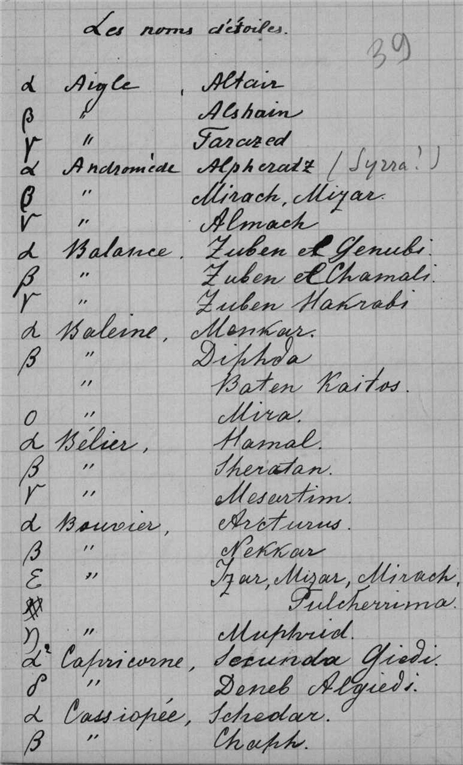 Les noms d'étoiles.
39
α Aigle , Altair
β " Alshain
γ " Tarazed
α Andromède Alpheratz (Syrra!)
β " Mirach, Mizar.
γ " Almach
α Balance. Zuben el Genubi.
β " Zuben el Chamali.
γ " Zuben Hakrabi
α Baleine, Menkar.
β " Diphda
" Baten Kaitos.
ο " Mira.
α Bélier, Hamal.
β " Sheratan.
γ " Mesartim.
α Bouvier, Arcturus.
β " Nekkar
ε " Izar, Mizar, Mirach,
Pulcherrima.
η " Muphrid.
α² Capricorne, Secunda Giedi.
δ " Deneb Algiedi.
α Cassiopée, Schedar.
β " Chaph.